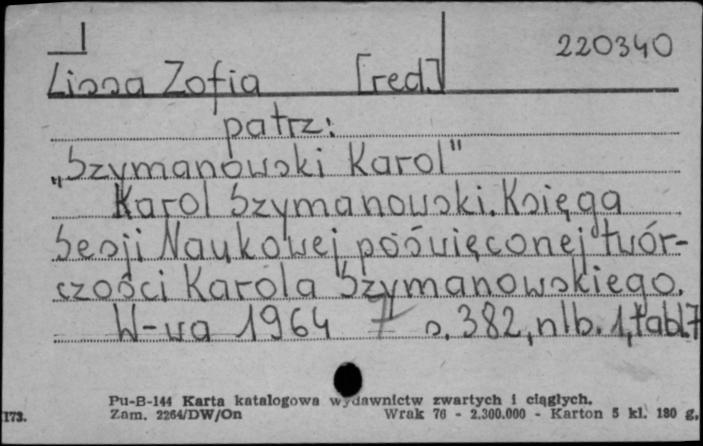 220340
Lissa Zofia [red.]
patrz:
„Szymanowski Karol"
Karol Szymanowski. Księga
Sesji Naukowej poświęconej twór-
czości Karola Szymanowskiego.
W-wa 1964 s. 382, nlb. 1, tabl. 7
Pu-B-144 Karta katalogowa wydawnictw zwartych i ciągłych.
173. Zam. 2264/DW/On Wrak 76 - 2.300.000 - Karton 5 kl. 180 g.